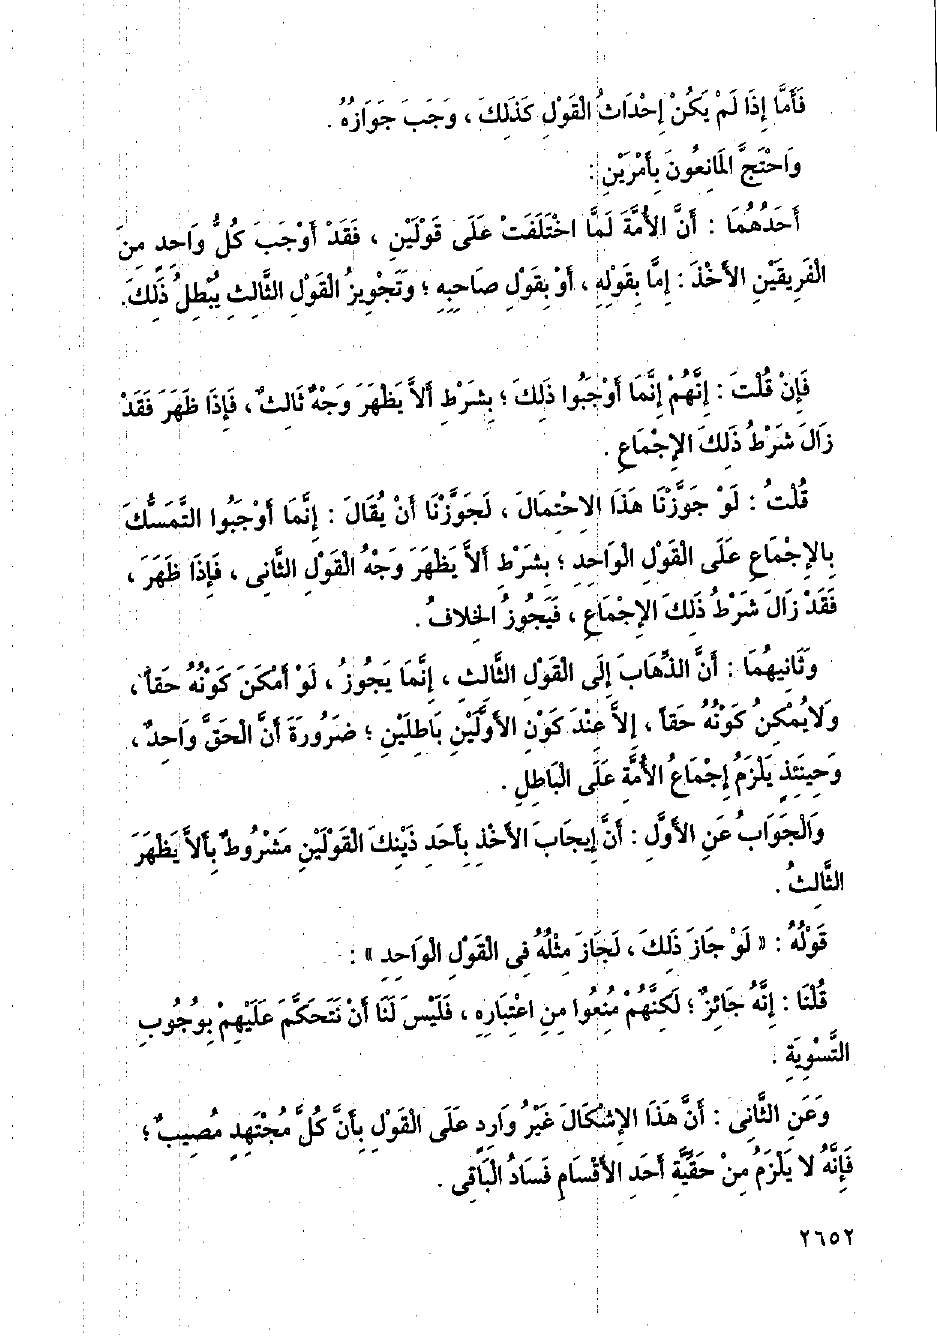 فَأَمَّا إِذَا لَمْ يَكُنْ إِحْدَاثُ الْقَوْلِ كَذَلِكَ ، وَجَبَ جَوَازُهُ .
وَاحْتَجَّ الْمَانِعُونَ بِأَمْرَيْنِ :
أَحَدُهُمَا : أَنَّ الأُمَّةَ لَمَّا اخْتَلَفَتْ عَلَى قَوْلَيْنِ ، فَقَدْ أَوْجَبَ كُلُّ وَاحِدٍ مِنَ
الْفَرِيقَيْنِ الأَخْذَ : إِمَّا بِقَوْلِهِ ، أَوْ بِقَوْلِ صَاحِبِهِ ؛ وَتَجْوِيزُ الْقَوْلِ الثَّالِثِ يُبْطِلُ ذَلِكَ.
فَإِنْ قُلْتَ : إِنَّهُمْ إِنَّمَا أَوْجَبُوا ذَلِكَ ؛ بِشَرْطِ أَلاَّ يَظْهَرَ وَجْهٌ ثَالِثٌ ، فَإِذَا ظَهَرَ فَقَدْ
زَالَ شَرْطُ ذَلِكَ الإِجْمَاعِ .
قُلْتُ : لَوْ جَوَّزْنَا هَذَا الاِحْتِمَالَ ، لَجَوَّزْنَا أَنْ يُقَالَ : إِنَّمَا أَوْجَبُوا التَّمَسُّكَ
بِالإِجْمَاعِ عَلَى الْقَوْلِ الْوَاحِدِ ؛ بِشَرْطِ أَلاَّ يَظْهَرَ وَجْهُ الْقَوْلِ الثَّانِى ، فَإِذَا ظَهَرَ ،
فَقَدْ زَالَ شَرْطُ ذَلِكَ الإِجْمَاعِ ، فَيَجُوزُ الخِلافُ .
وَثَانِيهُمَا : أَنَّ الذَّهَابَ إِلَى الْقَوْلِ الثَّالِثِ ، إِنَّمَا يَجُوزُ ، لَوْ أَمْكَنَ كَوْنُهُ حَقاً ،
وَلايُمْكِنُ كَوْنُهُ حَقاً ، إِلاَّ عِنْدَ كَوْنِ الأَوَّلَيْنِ بَاطِلَيْنِ ؛ ضَرُورَةَ أَنَّ الْحَقَّ وَاحِدٌ ،
وَحِينَئِذٍ يَلْزَمُ إِجْمَاعُ الأُمَّةِ عَلَى الْبَاطِلِ .
وَالْجَوَابُ عَنِ الأَوَّلِ : أَنَّ إِيجَابَ الأَخْذِ بِأَحَدِ ذَيْنِكَ الْقَوْلَيْنِ مَشْرُوطٌ بِأَلاَّ يَظْهَرَ
الثَّالِثُ .
قَوْلُهُ : « لَوْ جَازَ ذَلِكَ ، لَجَازَ مِثْلُهُ فِى الْقَوْلِ الْوَاحِدِ » :
قُلْنَا : إِنَّهُ جَائِزٌ ؛ لَكِنَّهُمْ مُنِعُوا مِنِ اعْتِبَارِهِ ، فَلَيْسَ لَنَا أَنْ نَتَحَكَّمَ عَلَيْهِمْ بِوُجُوبِ
التَّسْوِيَةِ .
وَعَنِ الثَّانِى : أَنَّ هَذَا الإِشْكَالَ غَيْرُ وَارِدٍ عَلَى الْقَوْلِ بِأَنَّ كُلَّ مُجْتَهِدٍ مُصِيبٌ ؛
فَإِنَّهُ لا يَلْزَمُ مِنْ حَقِّيَّةِ أَحَدِ الأَقْسَامِ فَسَادُ الْبَاقِى .
٢٦٥٢